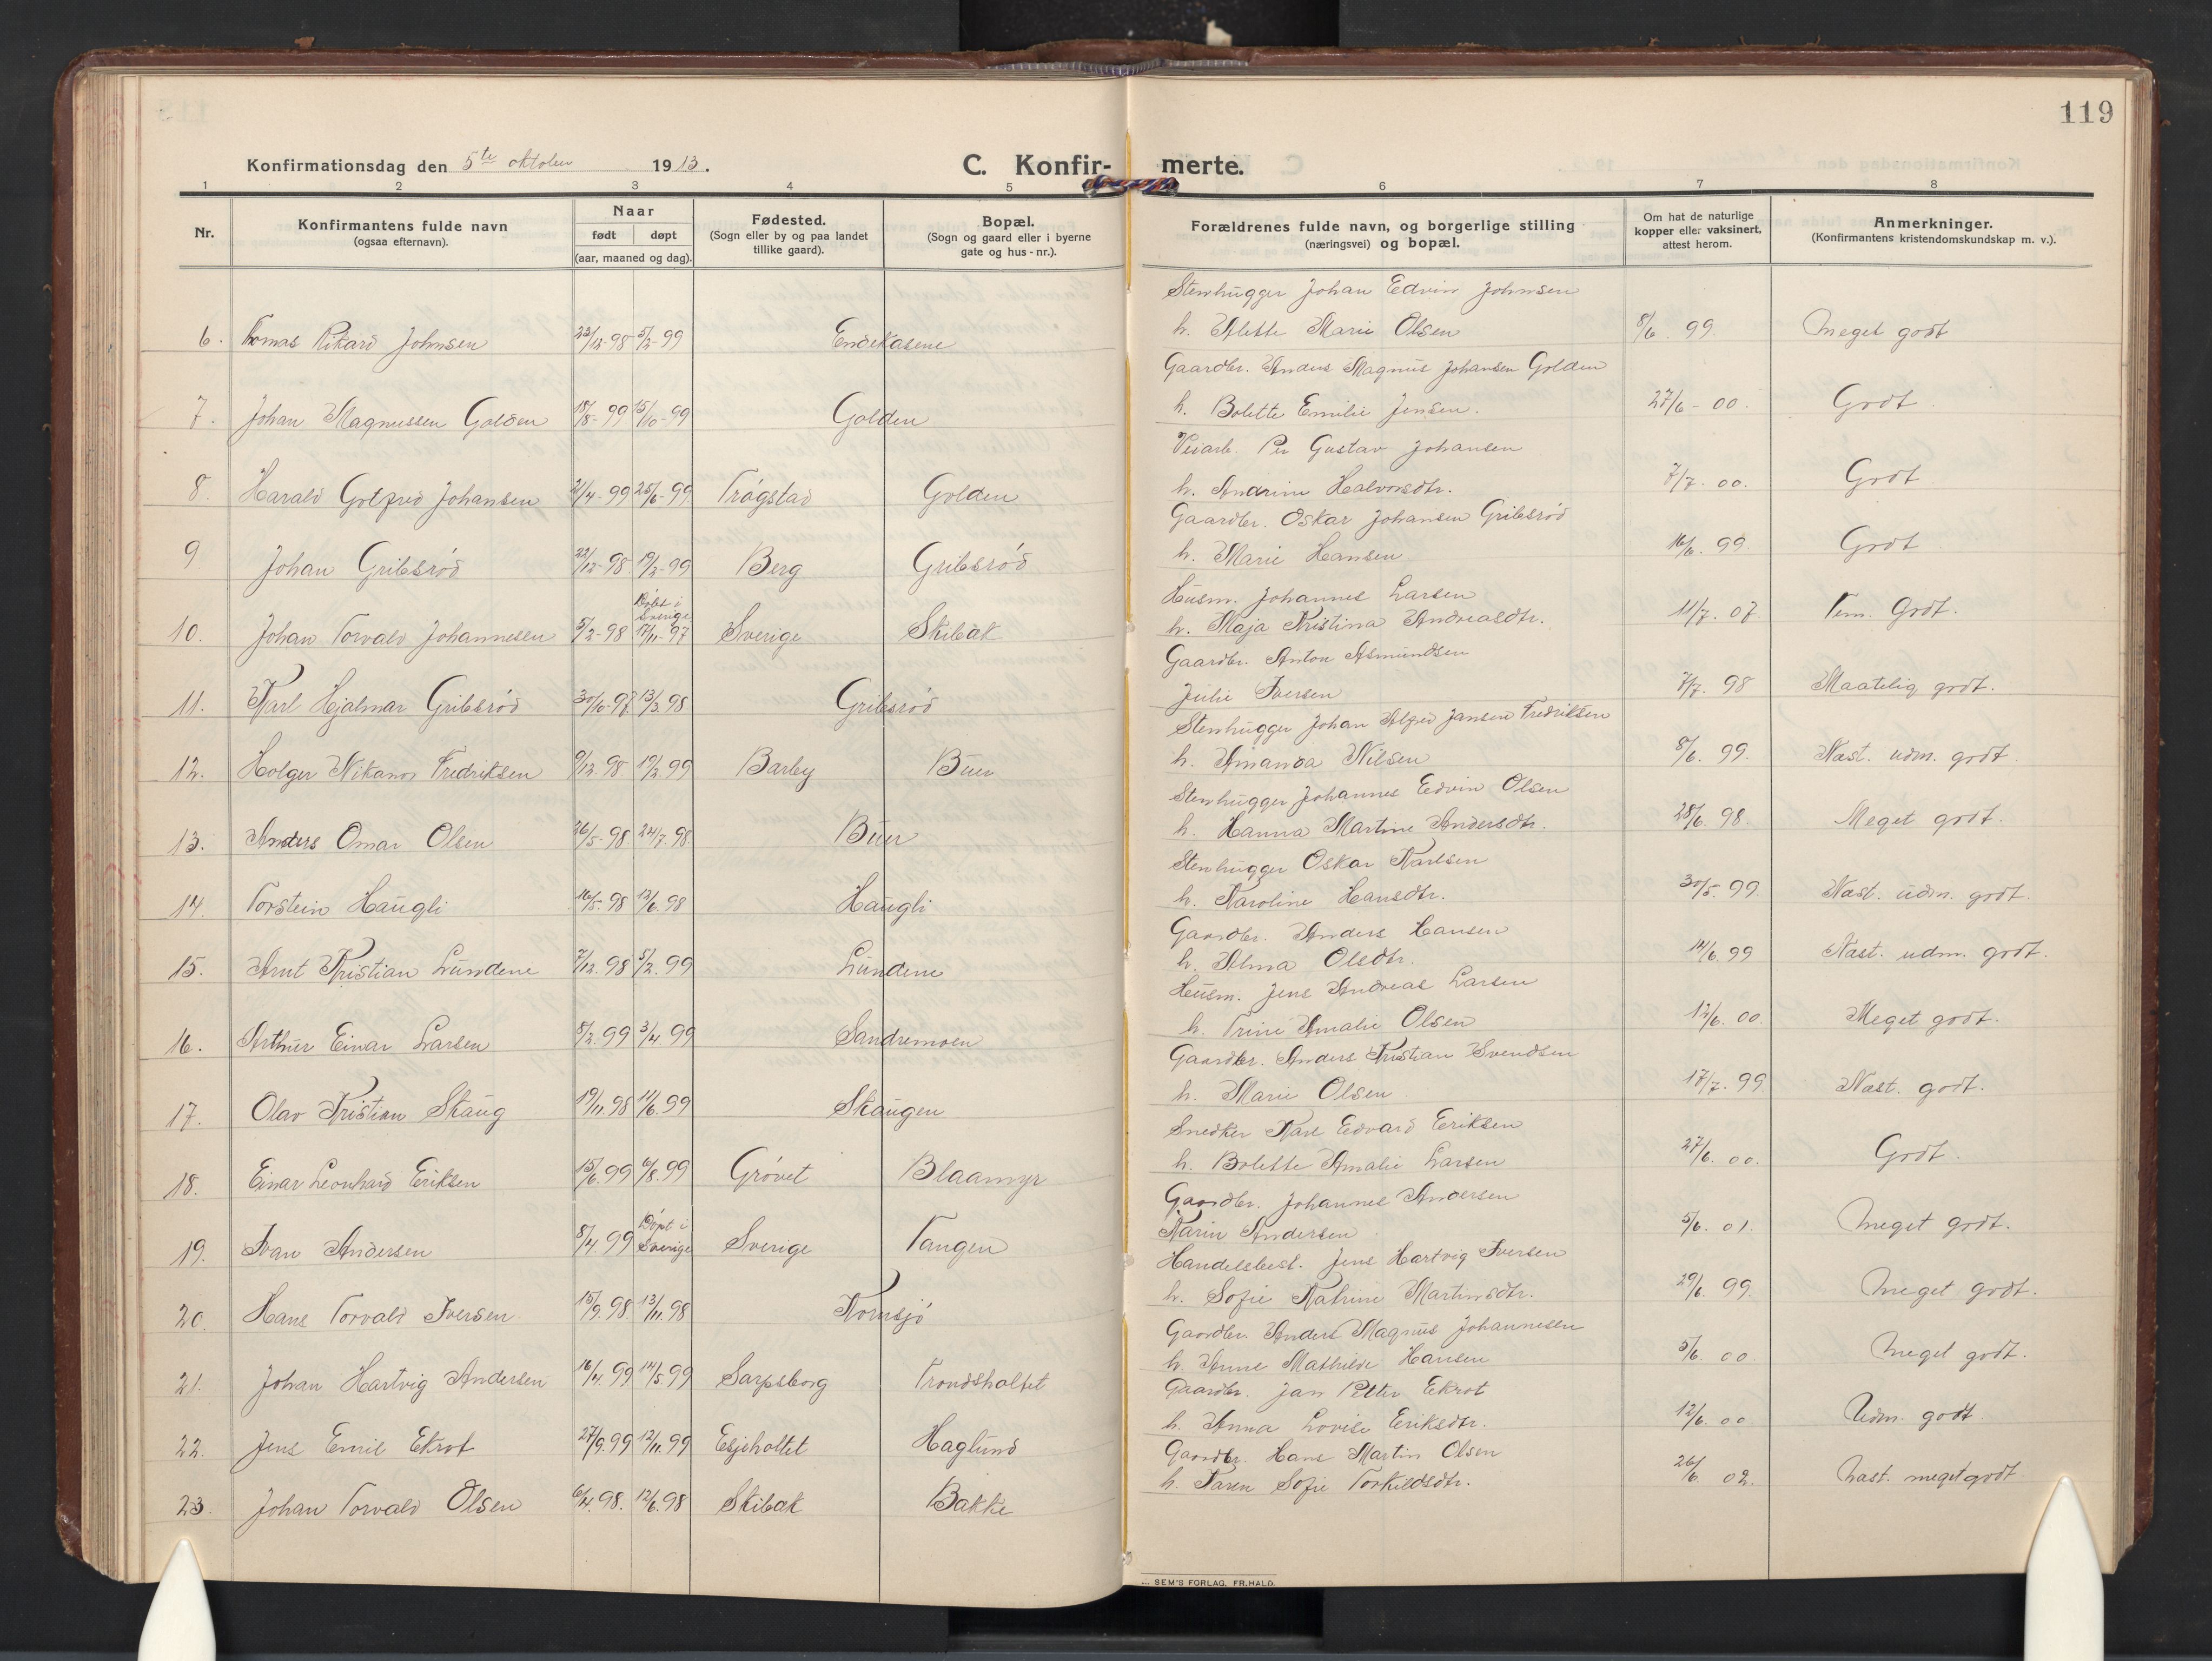 119
Konfirmationsdag den 5te oktober 1913.
C. Konfir- merte.
1 2 3 4 5 6 7 8
Nr.
Konfirmantens fulde navn
(ogsaa efternavn).
Naar
født døpt
(aar, maaned og dag).
Fødested.
(Sogn eller by og paa landet
tillike gaard).
Bopæl.
(Sogn og gaard eller i byerne
gate og hus-nr.).
Forældrenes fulde navn, og borgerlige stilling
(næringsvei) og bopæl.
Om hat de naturlige
kopper eller vaksinert,
attest herom.
Anmerkninger.
(Konfirmantens kristendomskundskap m. v.).
Stenhugger Johan Edvin Johnsen
6. Thomas Rikard Johnsen 23/12-98 5/2-99 Endekasene h. Alette Marie Olsen 8/6 99 Meget godt
Gaardbr. Anders Magnus Johansen Golden
7. Johan Magnussen Golden 18/8-99 15/10-99 Golden h. Bolette Emilie Jensen. 27/6-00. Godt
Veiarb. Per Gustav Johansen
8. Harald Gotfred Johansen 21/4-99 25/6-99 Trøgstad Golden h. Andrine Halvorsdtr. 7/7-00. Godt
Gaardbr. Oskar Johansen Gribsrød
9 Johan Gribsrød 22/12-98 19/2-99 Berg Gribsrød h. Marie Hansen 16/6 99. Godt
Husm. Johannes Larsen
Døbt i
Sverige
10. Johan Torvald Johannesen 5/2-98 17/11-97 Sverige Skibak h. Maja Kristina Andreasdtr. 11/7. 07 Tem. Godt.
Gaardbr. Anton Asmundsen
11. Karl Hjalmar Gribsrød 30/10-97 13/3 98 Gribsrød Julie Iversen 7/7. 98 Maatelig godt.
Stenhugger Johan Alfred Jansen Fredriksen
12. Holger Nikanor Fredriksen 9/12 98 19/2 99 Barby Buer h. Amanda Nilsen 8/6. 99. Næst. udm. godt
Stenhugger Johannes Edvin Olsen
13. Anders Omar Olsen 26/5-98 24/7. 98 Buer h. Hanna Martine Andersdtr. 28/6. 98. Meget godt.
Stenhugger Oskar Karlsen
14. Torstein Haugli 16/5-98 12/6. 98 Haugli h. Karoline Hansdtr. 30/5. 99 Næst. udm. godt.
Gaardbr. Anders Hansen
15. Arnt Kristian Lundene 7/12. 98 5/2. 99 Lundene h. Alma Olsdtr. 14/6. 99 Næst. udm. godt.
Husm. Jens Andreas Larsen
16. Arthur Einar Larsen 8/2. 99 3/4. 99 Sandremoen h. Trine Amalie Olsen 12/6. 00 Meget godt.
Gaardbr. Anders Kristian Svendsen
17. Olav Kristian Skaug 19/11. 98 14/6. 99 Skaugen h. Marie Olsen 17/7. 99 Næst. godt.
Snedker Karl Edvard Eriksen
18. Einar Leonhard Eriksen 15/6. 99 6/8. 99 Grøvet Blaamyr h. Bolette Amalie Larsen 27/6. 00. Godt.
Gaardbr. Johannes Andersen
Døpt i
19. Ivan Andersen 8/4. 99 Sverige Sverige Tangen Karin Andersen 5/6. 01. Meget godt.
Handelsbest. Jens Hartvig Iversen
20. Hans Torvald Iversen 15/9. 98 13/11. 98 Kornsjø h. Sofie Katrine Martinsdtr. 29/6. 99. Meget godt.
Gaardbr. Anders Magnus Johannesen
21. Johan Hartvig Andersen 16/4. 99 14/5. 99 Sarpsborg Trondsholtet h. Anne Mathilde Hansen 5/6. 00 Meget godt.
Gaardbr. Jan Petter Ekrot
22. Jens Emil Ekrot 27/9. 99 12/11. 99 Esjeholtet Haglund h. Anna Lovise Eriksdtr. 12/6. 00 Udm. godt
Gaardbr. Hans Martin Olsen
23. Johan Torvald Olsen 6/4. 98. 12/6. 98 Skibak Bakke h. Karen Sofie Torkildsdtr. 26/6. 02. Næst. meget godt
SEM'S FORLAG, FR.HALD.